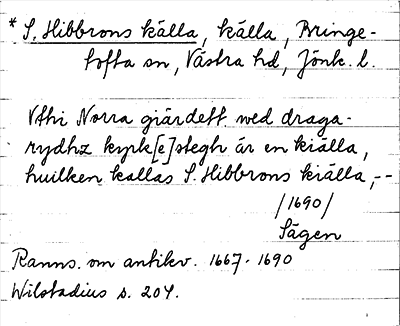 * S. Hibbrons källa, källa, Bringe-
tofta sn, Västra hd, Jönk. l.
Vthi Norra giärdett wed draga-
rydhz kyrk[e]stegh är en kiälla,
huilken kallas S. Hibbrons kiälla,--
/1690/
Sägen
Ranns. om antikv. 1667-1690
Wilstadius s. 204.